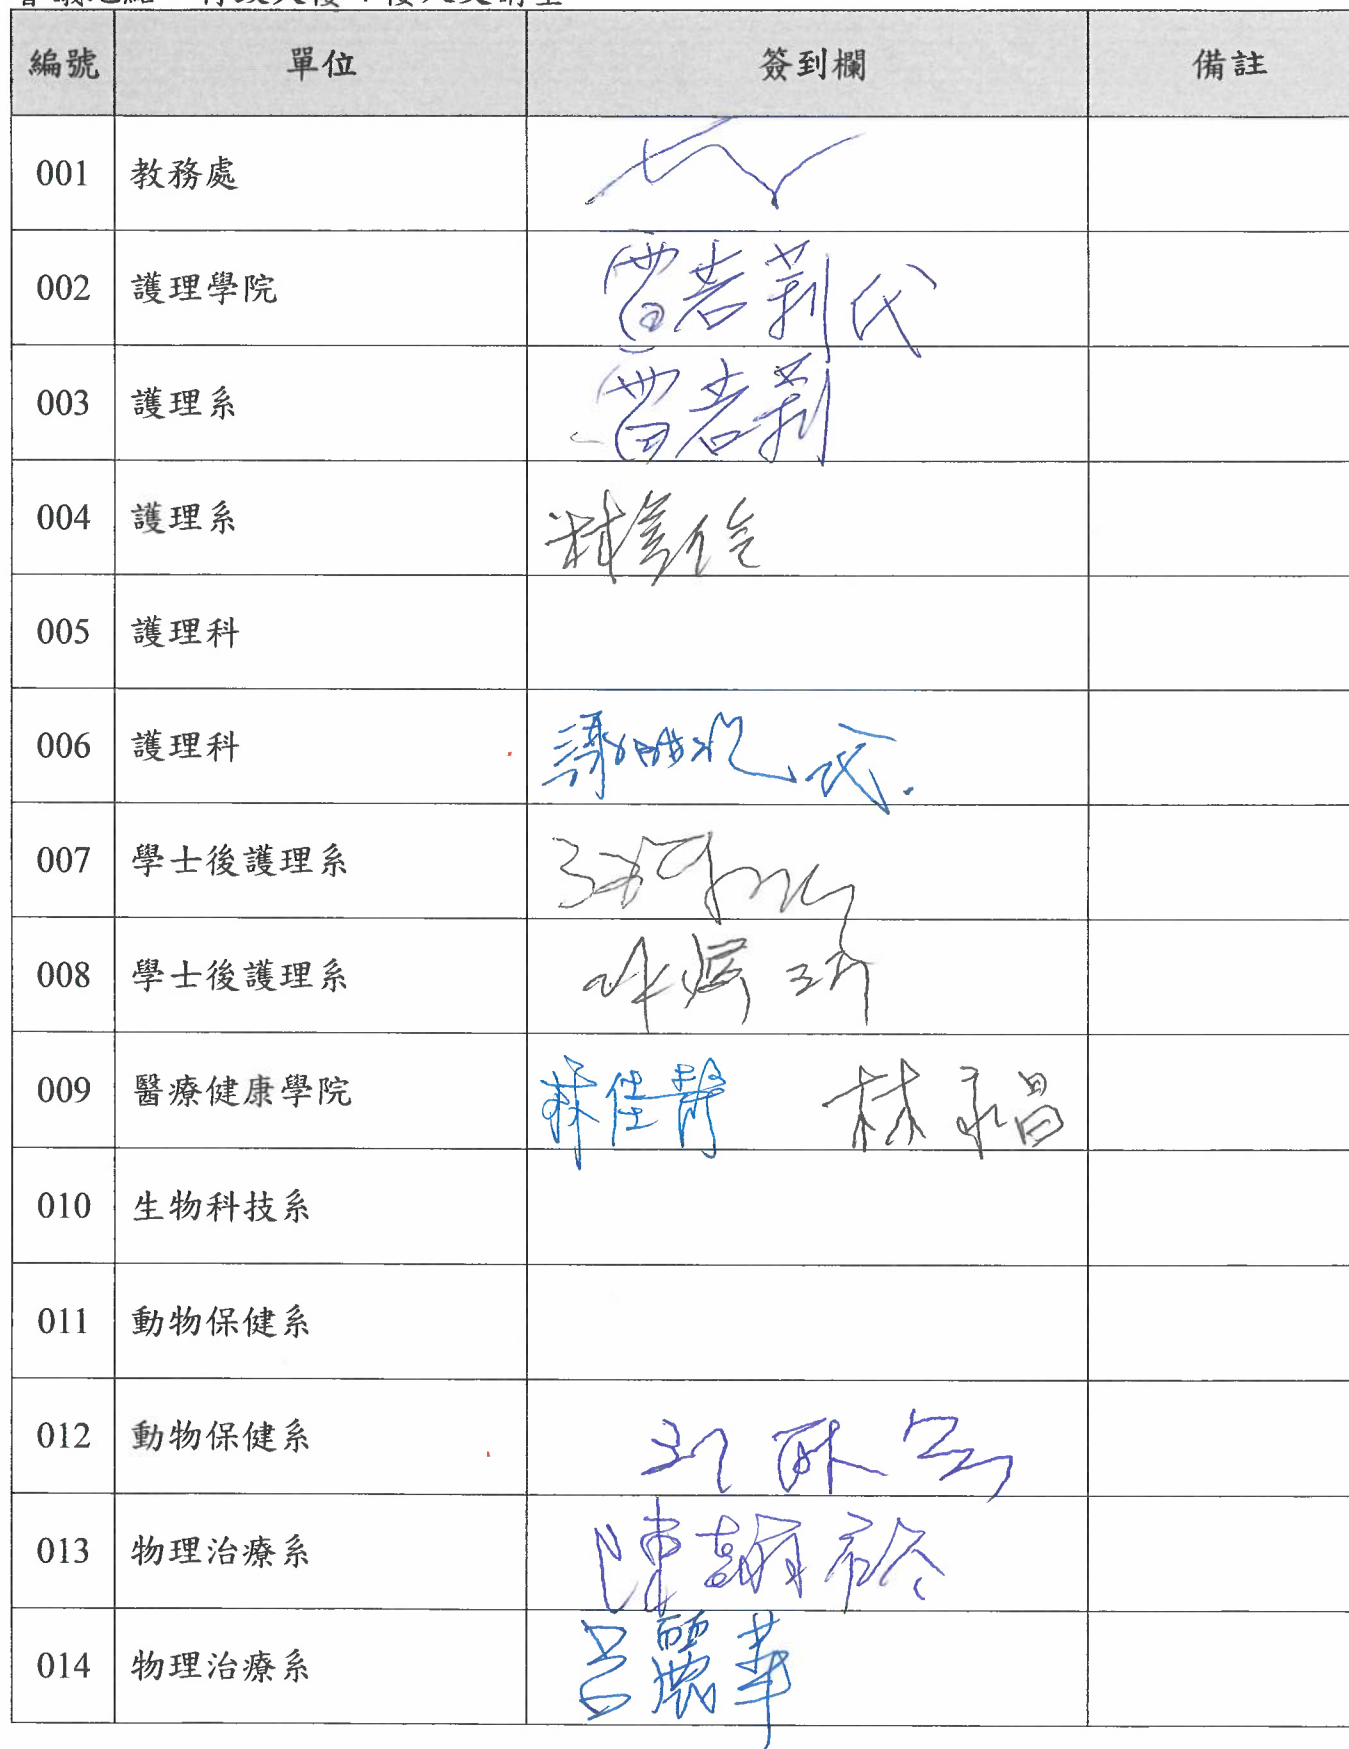 編號 單位 簽到欄 備註
001 教務處
002 護理學院 曾若莉代
003 護理系 曾若莉
004 護理系
005 護理科
006 護理科
007 學士後護理系
008 學士後護理系
009 醫療健康學院 林佳靜 林永昌
010 生物科技系
011 動物保健系
012 動物保健系
013 物理治療系 陳翰裕
014 物理治療系 呂麗華